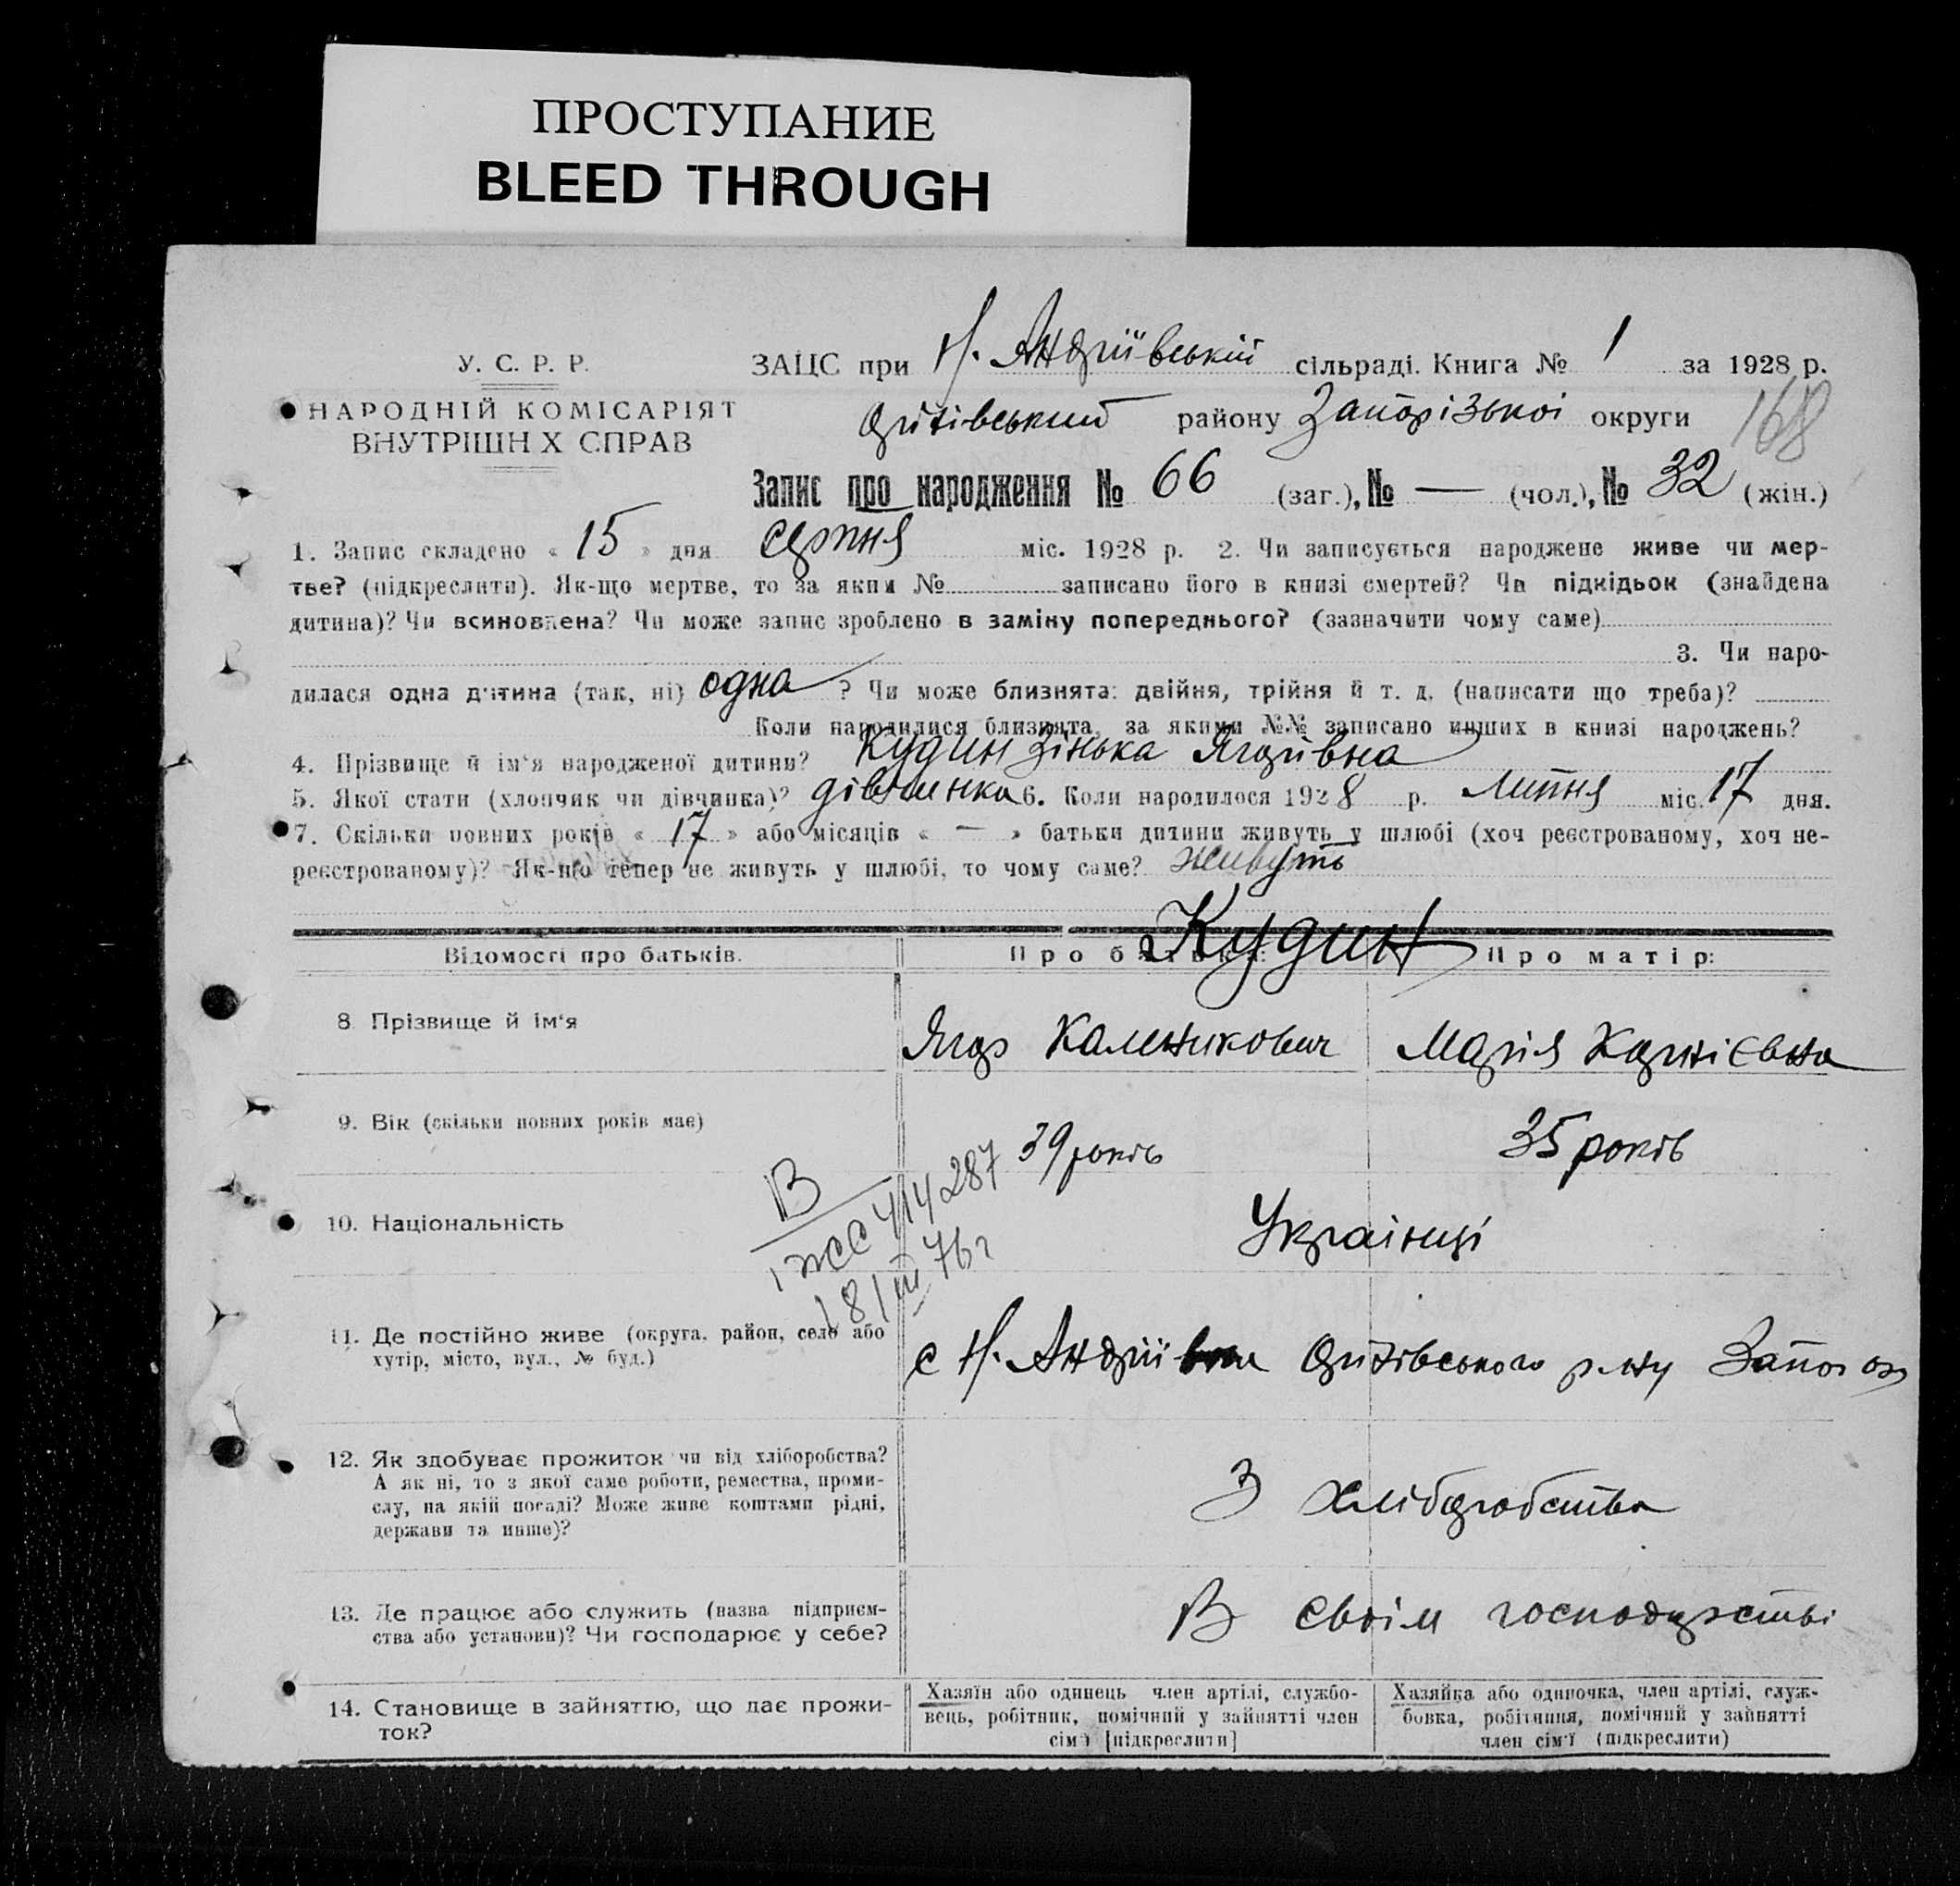 ПРОСТУПАНИЕ
BLEED THROUGH
У. С. Р. Р.
НАРОДНІЙ КОМІСАРІЯТ
ВНУТРІШН Х СПРАВ
ЗАЦС при Н. Андріївській сільраді. Книга № 1 за 1928 р.
району Запорізької округи
168
Запис про народження № 66 (заг.), № — (чол.), № 32 (жін.)
1. Запис складено « 15 » дня серпня міс. 1928 р. 2. Чи записується народжене живе чи мер-
тве? (підкреслити). Як-що мертве, то за яким № записано його в книзі смертей? Чи підкідьок (знайдена
дитина)? Чи всиновлена? Чи може запис зроблено в заміну попереднього? (зазначити чому саме)
3. Чи наро-
дилася одна дитина (так, ні) одна ? Чи може близнята: двійня, трійня й т. д. (написати що треба)?
Коли народилися близнята, за якими №№ записано инших в книзі народжень?
4. Прізвище й ім'я народженої дитини? Кудин Зінька Ягорівна
5. Якої стати (хлопчик чи дівчинка)? дівчинка 6. Коли народилося 1928 р. Липня міс. 17 дня.
7. Скільки повних років « 17 » або місяців « — » батьки дитини живуть у шлюбі (хоч реєстрованому, хоч не-
реєстрованому)? Як-що тепер не живуть у шлюбі, то чому саме? живуть
Кудин
Відомості про батьків. Про батька: Про матір:
8. Прізвище й ім'я Ягор Калникович Марія Корнієвна
9. Вік (скільки повних років має) 39 років 35 років
В
ЖС 414287
18/III 76 г
10. Національність Українці
11. Де постійно живе (округа, район, село або
хутір, місто, вул., № буд.)
с Н. Андріївка р-ну Запор окр
12. Як здобуває прожиток чи від хліборобства?
А як ні, то з якої саме роботи, ремества, проми-
слу, на якій посаді? Може живе коштами рідні,
держави та инше)?
З хліборобства
13. Де працює або служить (назва підприєм-
ства або установи)? Чи господарює у себе?
В своїм господарстві
14. Становище в зайняттю, що дає прожи-
ток?
Хазяїн або одинець член артілі, службо-
вець, робітник, помічний у зайнятті член
сім'ї [підкреслити]
Хазяйка або одиночка, член артілі, служ-
бовка, робітниця, помічний у зайнятті
член сім'ї (підкреслити)